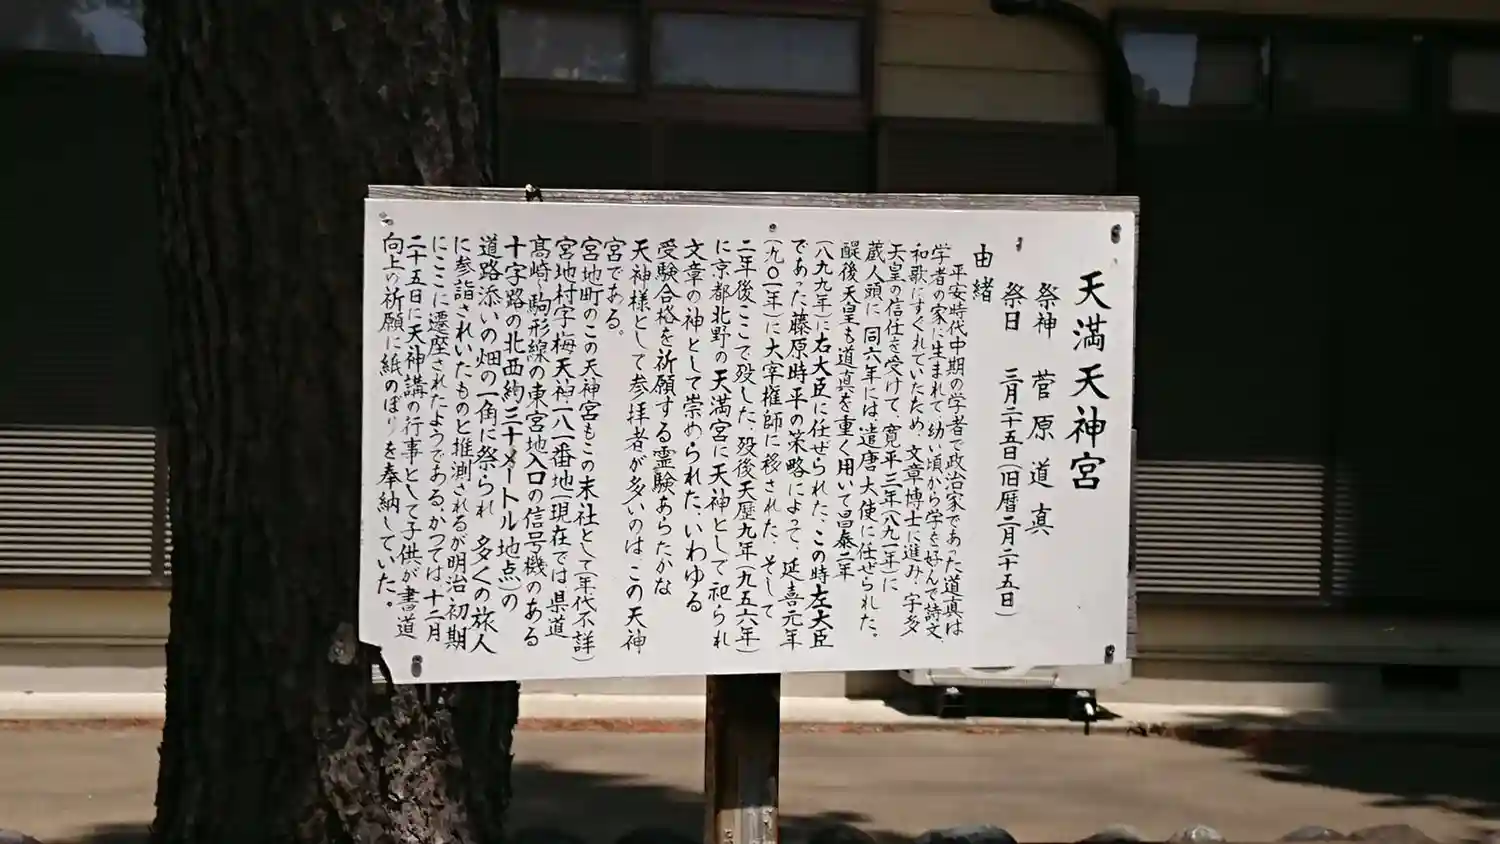 天満天神宮
祭神 菅原道真
祭日 三月二十五日(旧暦二月二十五日)
由緒
平安時代中期の学者で政治家であった道真は
学者の家に生まれて、幼い頃から学を好んで詩文、
和歌にすぐれていたため、文章博士に進み、宇多
天皇の信任を受けて、寛平三年(八九一年)に
蔵人頭に、同六年には遣唐大使に任ぜられた。
醍後天皇も道真を重く用いて昌泰二年
(八九九年)に右大臣に任ぜられた、この時左大臣
であった藤原時平の策略によって、延喜元年
(九〇一年)に大宰権師に移された、そして
二年後ここで歿した、歿後天歴九年(九五六年)
に京都北野の天満宮に天神として祀られ
文章の神として崇められた、いわゆる
受験合格を祈願する霊験あらたかな
天神様として参拝者が多いのは、この天神
宮である。
宮地町のこの天神宮もこの末社として(年代不詳)
宮地村字梅天神一八一番地(現在では県道
髙崎〜駒形線の東宮地入口の信号機のある
十字路の北西約三十メートル地点)の
道路添いの畑の一角に祭られ 多くの旅人
に参詣されいたものと推測されるが明治初期
にここに遷座されたようである、かつては十二月
二十五日に天神講の行事として子供が書道
向上の祈願に紙のぼりを奉納していた。